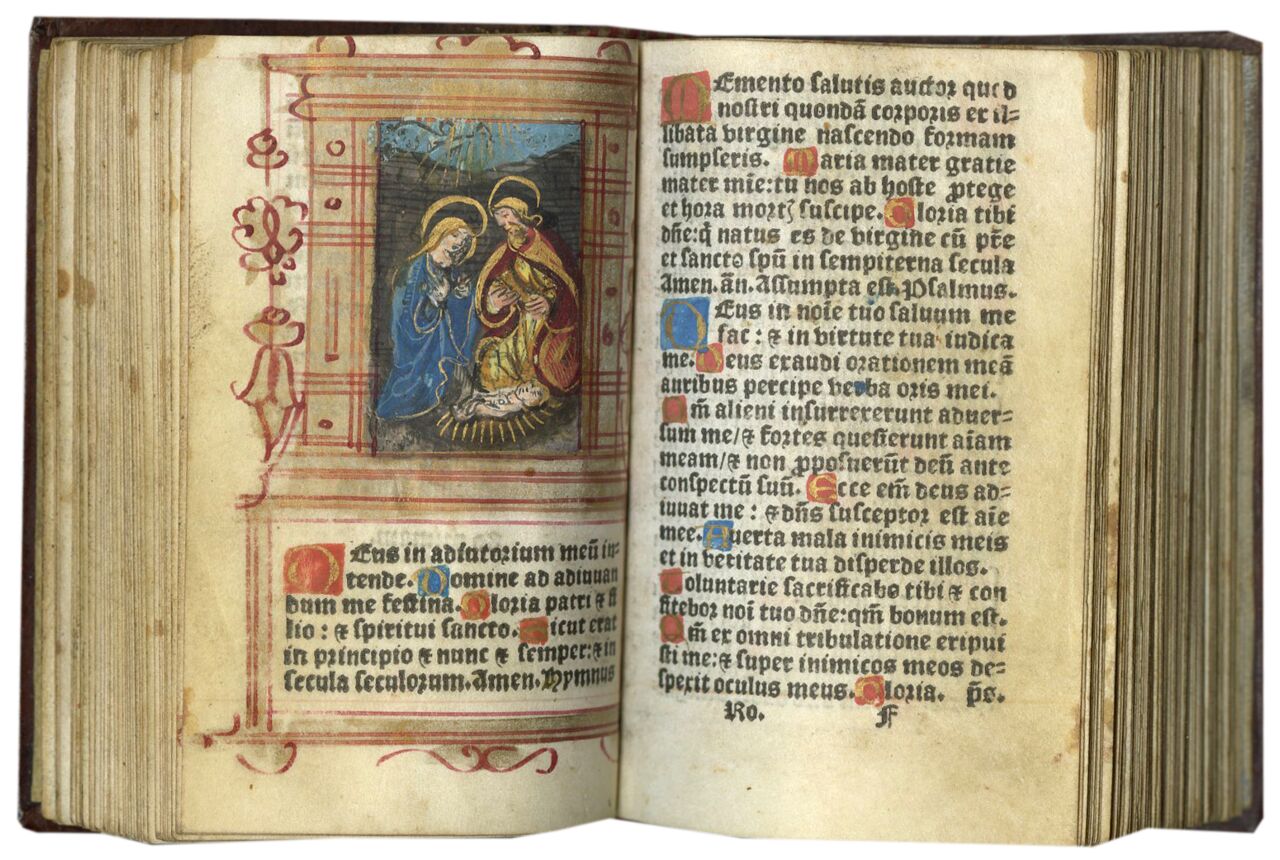 DEus in adiutorium meū in-
tende. Domine ad adiuuan
dum me festina. Gloria patri & fi
lio : & spiritui sancto. Sicut erat
in principio & nunc & semper: & in
secula seculorum. Amen. Hymnus
MEmento salutis auctor quod
nostri quondā corporis ex il=
libata virgine nascendo formam
sumpseris. Maria mater gratie
mater mīe: tu nos ab hoste ꝓtege
et hora mortꝭ suscipe. Gloria tibi
dn̄e: q̄ natus es de virgine cū pr̄e
et sancto spū in sempiterna secula
Amen. an̄. Assumpta est. Psalmus.
DEus in noīe tuo saluum me
fac : & in virtute tua iudica
me. Deus exaudi orationem meā
auribus percipe verba oris mei.
Qm̄ alieni insurrexerunt aduer=
sum me/ & fortes quesierunt aīam
meam/ & non ꝓposuerūt deū ante
conspectū suū. Ecce em̄ deus ad=
iuuat me : & dn̄s susceptor est aīe
mee. Auerta mala inimicis meis
et in veritate tua disperde illos.
Voluntarie sacrificabo tibi & con
fitebor noī tuo dn̄e: qm̄ bonum est.
Qm̄ ex omni tribulatione eripui
sti me: & super inimicos meos de=
spexit oculus meus. Gloria. p̄s.
Ro. F